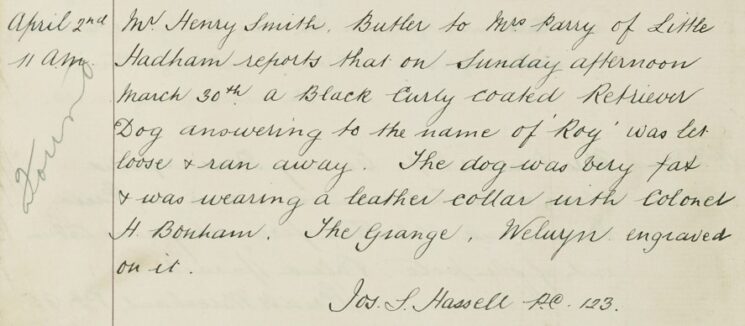 April 2nd
11 a.m.
Found
Mr Henry Smith, Butler to Mrs Parry of Little
Hadham reports that on Sunday afternoon
March 30th a Black Curly coated Retriever
Dog answering to the name of 'Roy' was let
loose & ran away. The dog was very fat
& was wearing a leather collar with Colonel
H. Bonham. The Grange, Welwyn engraved
on it.
Jos. S. Hassell P.C. 123.